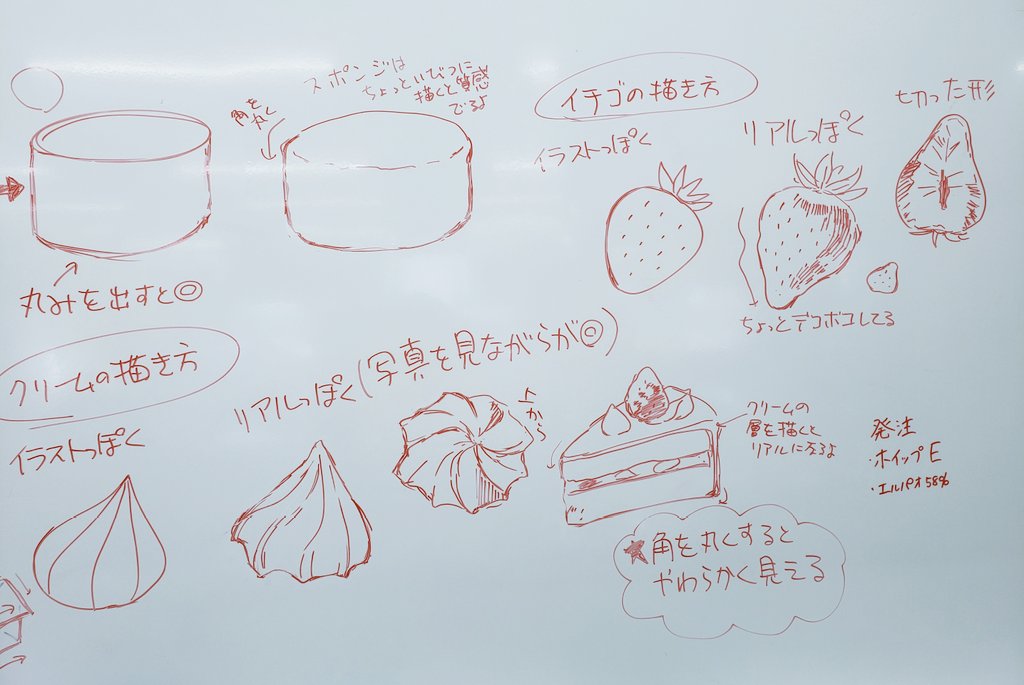 スポンジは
ちょっといびつに
描くと質感
でるよ
角を
丸く
丸みを出すと◎
イチゴの描き方
イラストっぽく
リアルっぽく
切った形
ちょっとデコボコしてる
クリームの描き方
イラストっぽく
リアルっぽく(写真を見ながらが◎)
上から
クリームの
層を描くと
リアルになるよ
★角を丸くすると
やわらかく見える
発注
・ホイップE
・エルパオ58%